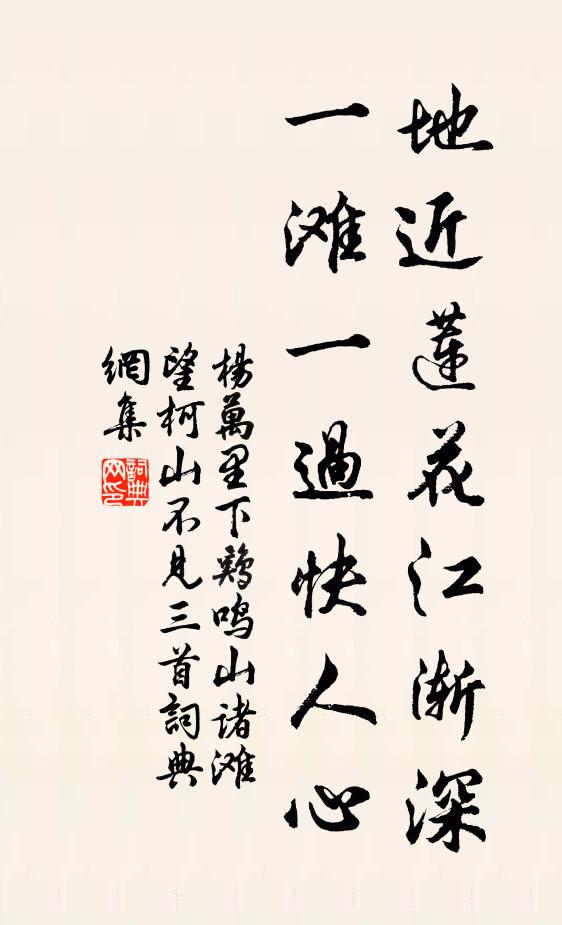 地近蓮花江渐深
一滩一過快人心
楊萬里下鷄鳴山諸滩
望柯山不見三首詞典
網集
詞典
网印